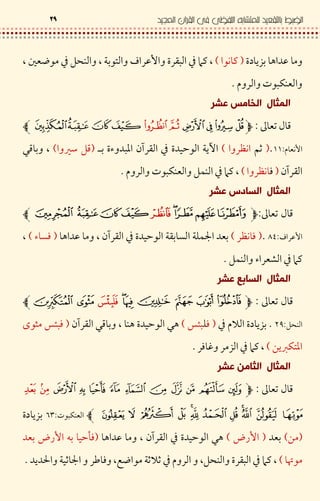 الضبط بالتقعيد للمتشابه اللفظي في القرآن المجيد ٢٩
وما عداها بزيادة ( كانوا ) ، كما في البقرة والأعراف والتوبة ، والنحل في موضعين ،
والعنكبوت والروم .
المثال الخامس عشر
قال تعالى : ﴿ قُلْ سِيرُوا۟ فِى ٱلْأَرْضِ ثُمَّ ٱنظُرُوا۟ كَيْفَ كَانَ عَٰقِبَةُ ٱلْمُكَذِّبِينَ ﴾
الأنعام:١١.( ثم انظروا ) الآية الوحيدة في القرآن المبدوءة بــ (قل سيروا) ، وباقي
القرآن ( فانظروا ) ، كما في النمل والعنكبوت والروم .
المثال السادس عشر
قال تعالى:﴿ وَأَمْطَرْنَا عَلَيْهِم مَّطَرًا ۖ فَٱنظُرْ كَيْفَ كَانَ عَٰقِبَةُ ٱلْمُجْرِمِينَ ﴾
الأعراف:٨٤ .( فانظر ) بعد الجملة السابقة الوحيدة في القرآن ، وما عداها ( فساء ) ،
كما في الشعراء والنمل .
المثال السابع عشر
قال تعالى : ﴿ فَٱدْخُلُوٓا۟ أَبْوَٰبَ جَهَنَّمَ خَٰلِدِينَ فِيهَا ۖ فَلَبِئْسَ مَثْوَى ٱلْمُتَكَبِّرِينَ ﴾
النحل:٢٩ . بزيادة اللام في ( فلبئس ) هي الوحيدة هنا ، وباقي القرآن ( فبئس مثوى
المتكبرين ) ، كما في الزمر وغافر .
المثال الثامن عشر
قال تعالى : ﴿ وَلَئِن سَأَلْتَهُم مَّن نَّزَّلَ مِنَ ٱلسَّمَآءِ مَآءً فَأَحْيَا بِهِ ٱلْأَرْضَ مِنۢ بَعْدِ
مَوْتِهَا لَيَقُولُنَّ ٱللَّهُ ۚ قُلِ ٱلْحَمْدُ لِلَّهِ ۚ بَلْ أَكْثَرُهُمْ لَا يَعْقِلُونَ ﴾ العنكبوت:٦٣ بزيادة
(من) بعد ( الأرض ) هي الوحيدة في القرآن ، وما عداها (فأحيا به الأرض بعد
موتها ) ، كما في البقرة والنحل، و الروم في ثلاثة مواضع، وفاطر و الجاثية والحديد .